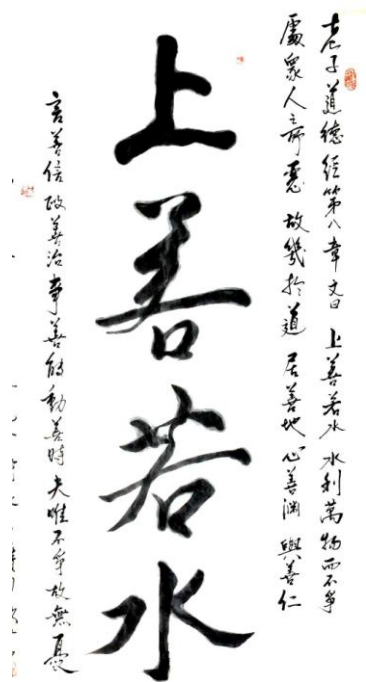 老子道德經第八章文曰 上善若水 水利萬物而不爭
處衆人之所惡 故幾於道 居善地 心善淵 與善仁
上善若水
言善信 政善治 事善能 動善時 夫唯不爭故無憂